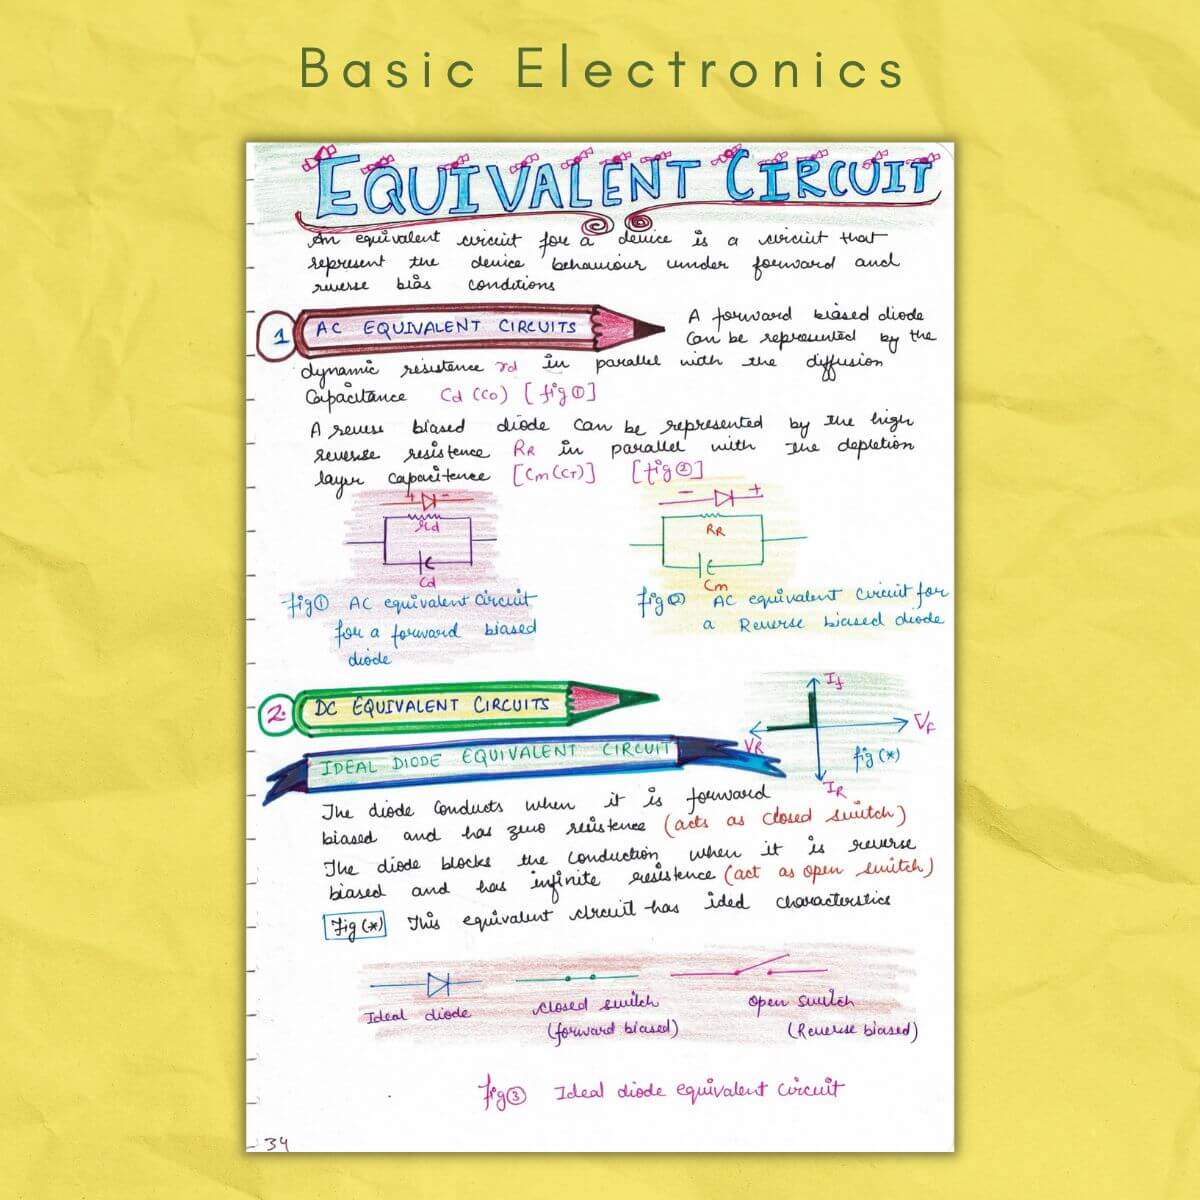 Basic Electronics
EQUIVALENT CIRCUIT
An equivalent circuit for a device is a circuit that
represent the device behaviour under forward and
reverse bias conditions
1 AC EQUIVALENT CIRCUITS
A forward biased diode
Can be represented by the
dynamic resistence rd in parallel with the diffusion
Capacitance Cd (CD) [fig ①]
A reverse biased diode can be represented by the high
reverse resistence RR in parallel with the depletion
layer capacitence [Cm (CT)] [fig ②]
+ -
rd
Cd
- +
RR
Cm
fig ① AC equivalent circuit
for a forward biased
diode
fig ② AC equivalent circuit for
a Reverse biased diode
2. DC EQUIVALENT CIRCUITS
If
VF
VR
IR
fig (*)
IDEAL DIODE EQUIVALENT CIRCUIT
The diode conducts when it is forward
biased and has zero resistence (acts as closed switch)
The diode blocks the conduction when it is reverse
biased and has infinite resistence (act as open switch)
Fig (*) This equivalent circuit has ided characterstics
Ideal diode
closed switch
(forward biased)
open switch
(Reverse biased)
fig ③ Ideal diode equivalent circuit
34